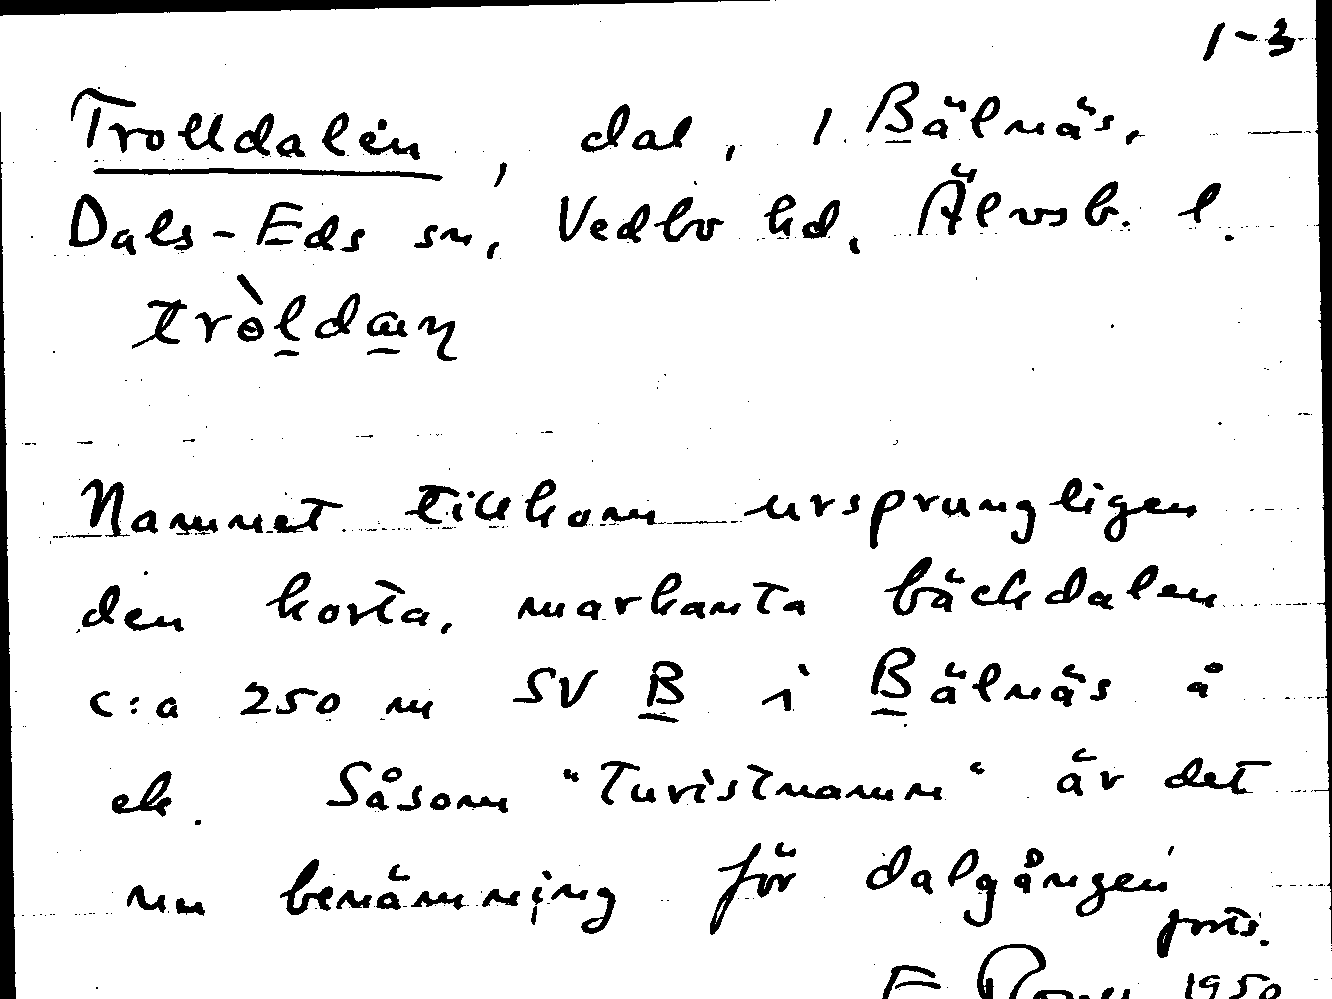 1-3
Trolldalen, dal, i Bälnäs,
Dals-Eds sn, Vedbo hd, Älvsb. l.
Namnet tillkom ursprungligen
den korta, markanta bäckdalen
c:a 250 m SV B i Bälnäs å
ek. Såsom "Turistnamn" är det
nu benämning för dalgången
forts.
1950